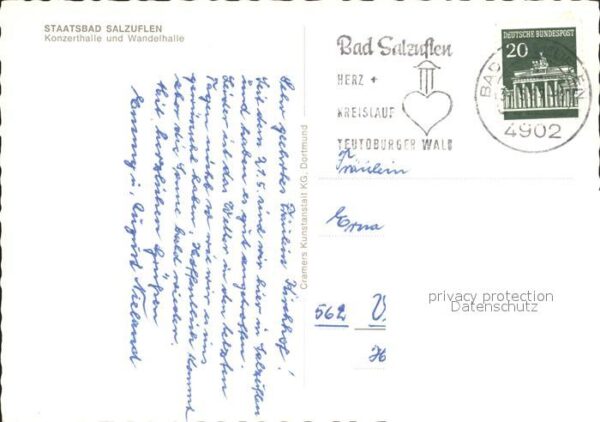 STAATSBAD SALZUFLEN
Konzerthalle und Wandelhalle
Sehr geehrtes Fräulein Kirchhof!
Seit dem 21.5. sind wir hier in Salzuflen
und haben es gut angetroffen.
Leider ist das Wetter in den letzten
Tagen nicht so wie wir es uns
gewünscht haben. Hoffentlich kommt
aber die Sonne bald wieder.
Mit herzlichen Grüßen
Emmy u. August Nieland
Cramers Kunstanstalt KG, Dortmund
Bad Salzuflen
HERZ +
KREISLAUF
TEUTOBURGER WALD
BAD
4902
DEUTSCHE BUNDESPOST
20
Fräulein
Erna
562 V
privacy protection
Datenschutz